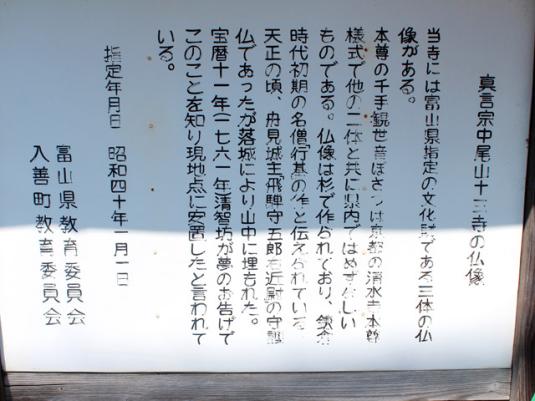 真言宗中尾山十三寺の仏像
当寺には富山県指定の文化財である三体の仏
像がある。
本尊の千手観世音ぼさつは京都の清水寺本尊
様式で他の二体と共に県内ではめずらしい
ものである。仏像は杉で作られており、鎌倉
時代初期の名僧行基の作と伝えられている。
天正の頃、舟見城主飛騨守五郎左近尉の守護
仏であったが落城により山中に埋もれた。
宝暦十一年(一七六一年)清智坊が夢のお告げで
このことを知り現地点に安置したと言われて
いる。
指定年月日 昭和四十年一月一日
富山県教育委員会
入善町教育委員会